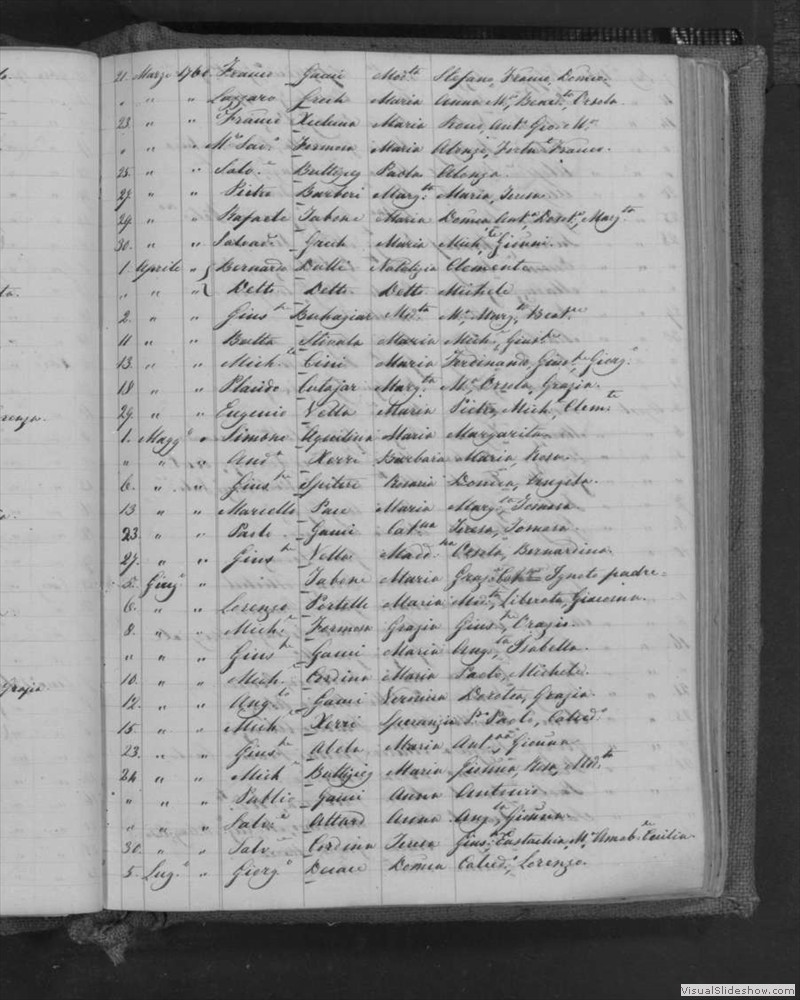 to.
ta.
orenza.
a.
Grazia
21. Marzo 1760. Franco Gauci Mod.ta Stefano, Franco, Domco
" " " Lazzaro Grech Maria Anna M.a, Bened.ta, Orsola.
23. " " Franco Xicluna Maria Rosa, Ant.a Gio. M.a
" " " M.o Sav.e Formosa Maria Alonzi, Fort.a Franco.
25. " " Salv.e Buttigieg Paola Alonza.
27. " " Pietro Barberi Marg.ta Maria, Teresa
29. " " Rafaele Sabone Maria Domca Ant.a, Dorot.a, Marg.ta
30. " " Salvad.e Grech Maria Mich.la, Gionni.
1. Aprile " Bernardo Dalli Natalizia Clemente
" " " Detto Detto Detta Michele
2. " " Gius.e Buhagiar Mod.ta M.a, Marg.ta, Beat.ce
11 " " Butta Stivala Maria Mich.e, Gius.e
13. " " Mich.le Cini Maria Ferdinando, Gius.e, Giorg.o
18 " " Placido Cutajar Marg.ta M.a Orsola, Grazia.
29. " " Eugenio Vella Maria Pietro, Mich.e, Clem.te
1. Magg.o " Simone Aquilina Maria Margarita.
" " " And.a Xerri Barbara Maria, Rosa.
6. " " Gius.e Spiteri Rosaria Domca, Angela.
13 " " Marcello Pace Maria Marg.ta, Tomasa.
23. " " Paolo Gauci Cat.na Teresa, Tomasa.
27. " " Gius.e Vella Madd.na Orsola, Bernardina.
5. Giug.o " Sabone Maria Graz.a Ignoto padre=
6. " " Lorenzo Portelli Maria Mod.ta, Liberata, Giacoma.
8. " " Mich.e Formosa Grazia Gius.e, Orazio.
" " " Gius.e Gauci Maria Ang.la, Isabella.
10. " " Mich.e Cordina Maria Paolo, Michele.
12. " " Ang.lo Gauci Veronica Dorotea, Grazia.
15. " " Mich.e Xerri Speranza P. Paolo, Calced.o
23. " " Gius.e Abela Maria Ant.na, Gionna
24 " " Mich.e Buttigieg Maria Gionna, Rosa, Mod.ta
" " " Publio Gauci Anna Antonio
" " " Salv.e Attard Anna Ang.la, Gionna.
30. " " Salv.e Cordina Teresa Gius.a Eustachia, M.a Amab.le Cecilia
5. Lug.o " Giorg.o Domca Calced.o, Lorenzo.
VisualSlideshow.com